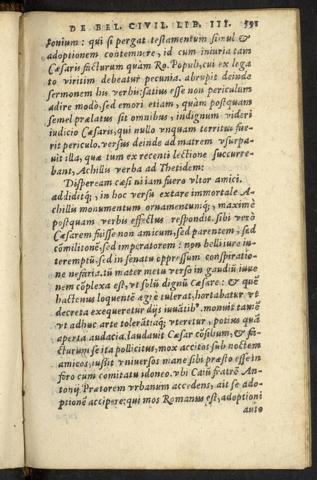 DE BEL. CIVIL. LIB. III. 591
tonium: qui si pergat testamentum simul &
adoptionem contemnere, id cum iniuria tam
Cæsaris facturum quàm Ro. Populi, cui ex lega
to viritim debeatur pecunia. abrupit deinde
sermonem his verbis: satius esse non periculum
adire modò, sed emori etiam, quàm postquam
semel prælatus sit omnibus, indignum videri
iudicio Cæsaris, qui nullo vnquam territus fue-
rit periculo. versus deinde ad matrem vsurpa-
uit illa, quæ tum ex recenti lectione succurre-
bant, Achillis verba ad Thetidem:
Dispeream cæsi ni iam fuero vltor amici.
addiditq́; in hoc versu extare immortale A-
chillis monumentum ornamentumq́; maximè
postquam verbis effectus respondit. sibi verò
Cæsarem fuisse non amicum, sed parentem, sed
cōmilitonē, sed imperatorem: non belli iure in-
teremptū, sed in senatu oppressum conspiratio-
ne nefaria. tū mater metu verso in gaudiū iuue
nem cōplexa est, vt solū dignū Cæsare: & quē
hactenus loquentē ægrè tulerat, hortabatur vt
decreta exequeretur dijs iuuātib⁹. monuit tamē
vt adhuc arte tolerātiaq́; vteretur, potius quā
aperta audacia. laudauit Cæsar cōsilium, & fa-
cturum se ita pollicitus, mox accitos sub noctem
amicos, iußit vniuersos mane sibi præsto esse in
foro cum comitatu idoneo. vbi Caiū fratrē An-
tonij Prætorem vrbanum accedens, ait se ado-
ptionē accipere: qui mos Romanus est, adoptioni
auto